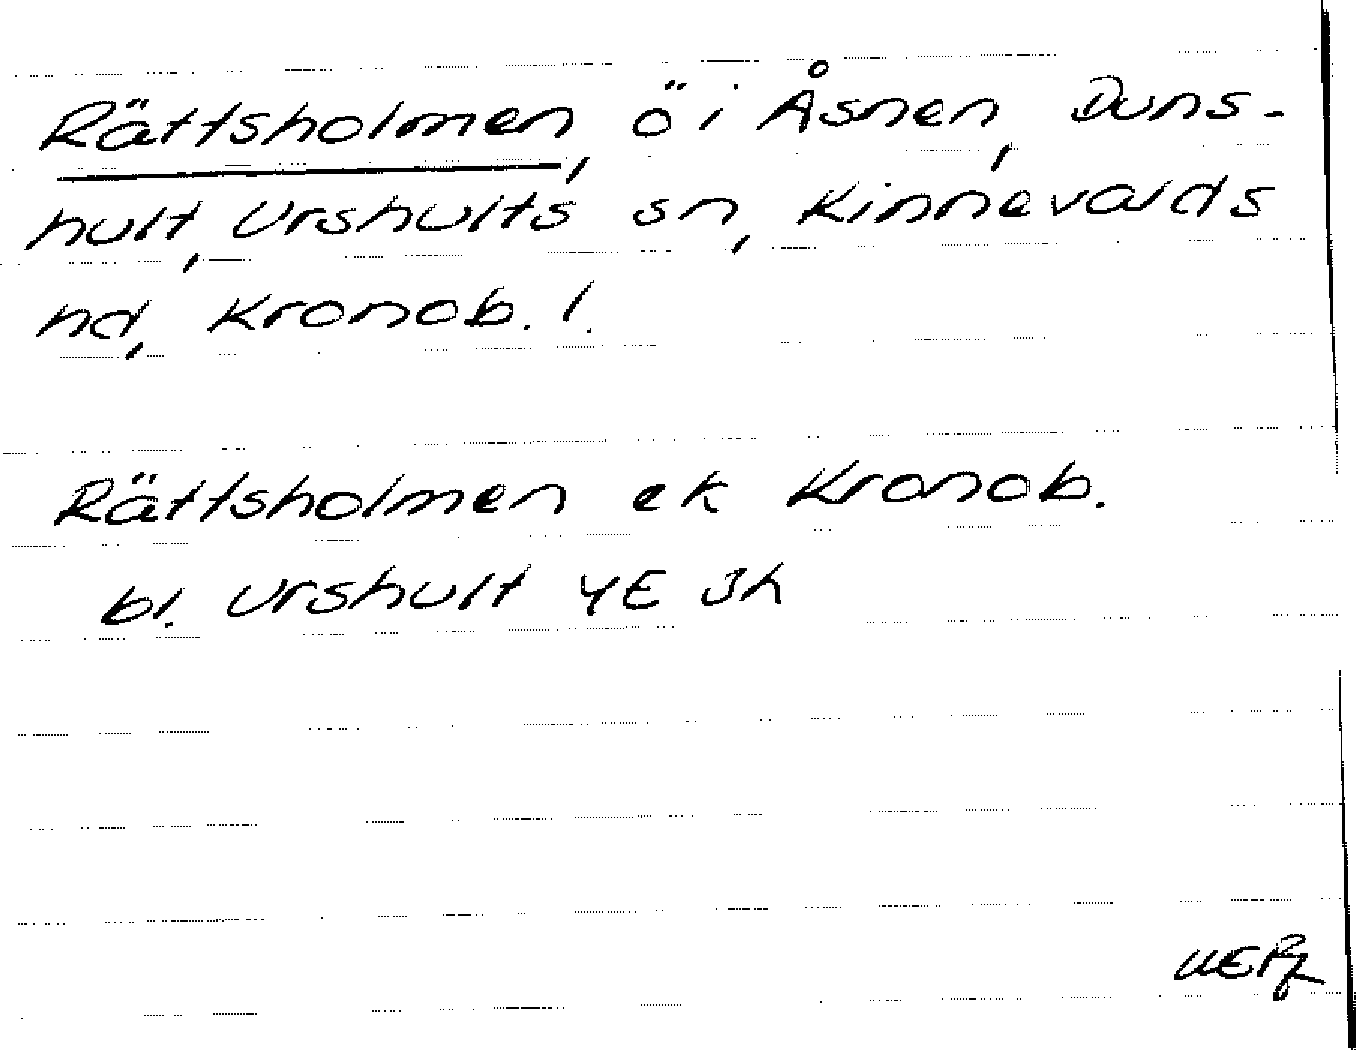 Rättsholmen, ö i Åsnen, Duns-
hult, Urshults sn, Kinnevalds
hd, Kronob. l.
Rättsholmen ek Kronob.
bl. Urshult 4E Jh